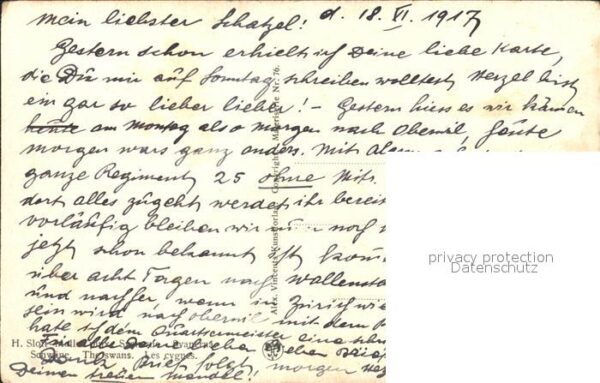 Mein liebster Schatzel! d. 18. VI. 1917
Gestern schon erhielt ich Deine liebe Karte,
die Du mir auf Sonntag schreiben wolltest Herzel bist
ein gar so lieber lieber! - Gestern hiess es wir kämen
heute am Montag also morgen nach Oberwil, heute
morgen wars ganz anders. Mit
ganze Regiment 25 ohne Mitr.
dort alles zugeht werdet ihr bereits
vorläufig bleiben wir nur noch
jetzt schon bekannt ist,
über acht Tagen nach Wallenst
und nachher, wenn in Zürich
sein wird nach Oberwil mit dem
habe ich dem Quartiermeister eine
Für alle Deine lieben
Dank Brief folgt morgen
Deinen treuen
H. Slott-Möller
Schwäne. The swans. Les cygnes.
Alex. Vincents Kunstforlag. Nr. 76.
privacy protection
Datenschutz